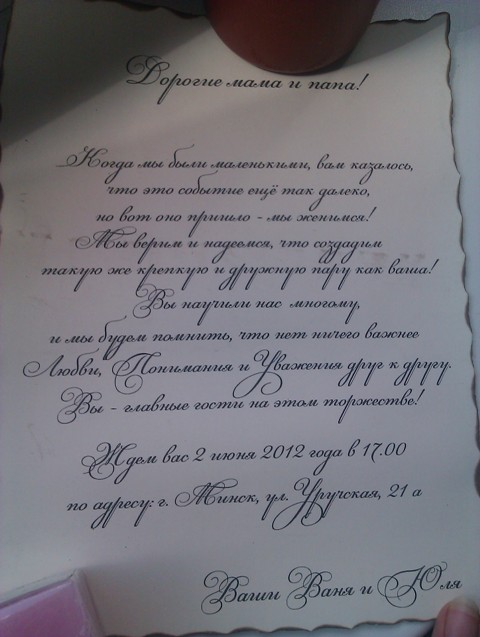 Дорогие мама и папа!
Когда мы были маленькими, вам казалось,
что это событие ещё так далеко,
но вот оно пришло - мы женимся!
Мы верим и надеемся, что создадим
такую же крепкую и дружную пару как ваша!
Вы научили нас многому,
и мы будем помнить, что нет ничего важнее
Любви, Понимания и Уважения друг к другу.
Вы - главные гости на этом торжестве!
Ждем вас 2 июня 2012 года в 17.00
по адресу: г. Минск, ул. Уручская, 21 а
Ваши Ваня и Юля